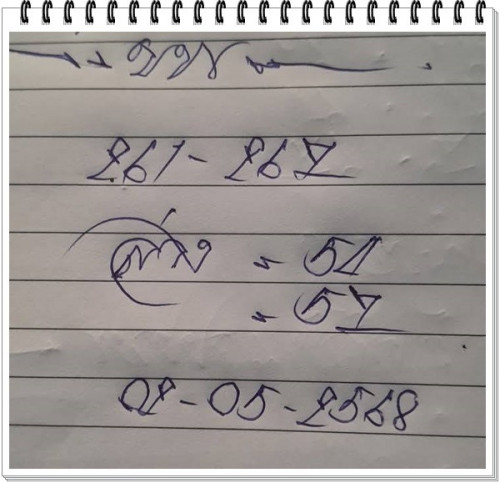 261 - 267
ล่าง = 51
= 57
02-05-2568